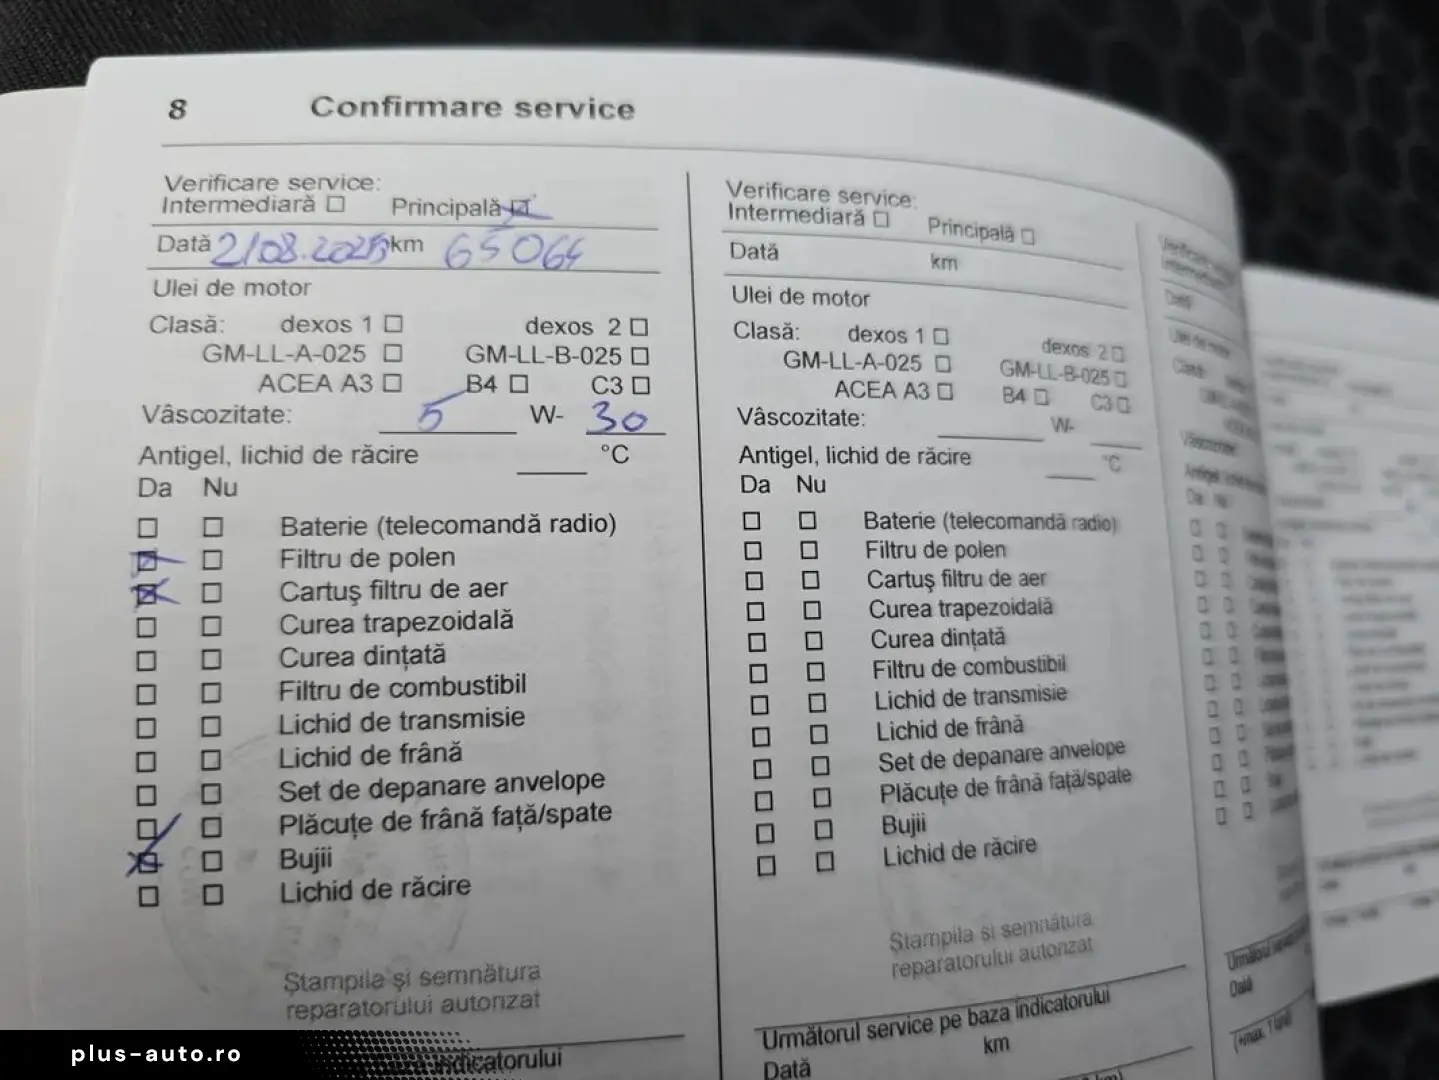 8 Confirmare service
Verificare service:
Intermediară Principală
Dată km 65064
Ulei de motor
Clasă: dexos 1 dexos 2
GM-LL-A-025 GM-LL-B-025
ACEA A3 B4 C3
Vâscozitate: 5 W- 30
Antigel, lichid de răcire °C
Da Nu
Baterie (telecomandă radio)
Filtru de polen
Cartuş filtru de aer
Curea trapezoidală
Curea dinţată
Filtru de combustibil
Lichid de transmisie
Lichid de frână
Set de depanare anvelope
Plăcuţe de frână faţă/spate
Bujii
Lichid de răcire
Ştampila şi semnătura
reparatorului autorizat
indicatorului
Verificare service:
Intermediară Principală
Dată km
Ulei de motor
Clasă: dexos 1 dexos 2
GM-LL-A-025 GM-LL-B-025
ACEA A3 B4 C3
Vâscozitate: W-
Antigel, lichid de răcire °C
Da Nu
Baterie (telecomandă radio)
Filtru de polen
Cartuş filtru de aer
Curea trapezoidală
Curea dinţată
Filtru de combustibil
Lichid de transmisie
Lichid de frână
Set de depanare anvelope
Plăcuţe de frână faţă/spate
Bujii
Lichid de răcire
Ştampila si semnătura
reparatorului autorizat
Următorul service pe baza indicatorului
Dată km
plus-auto.ro